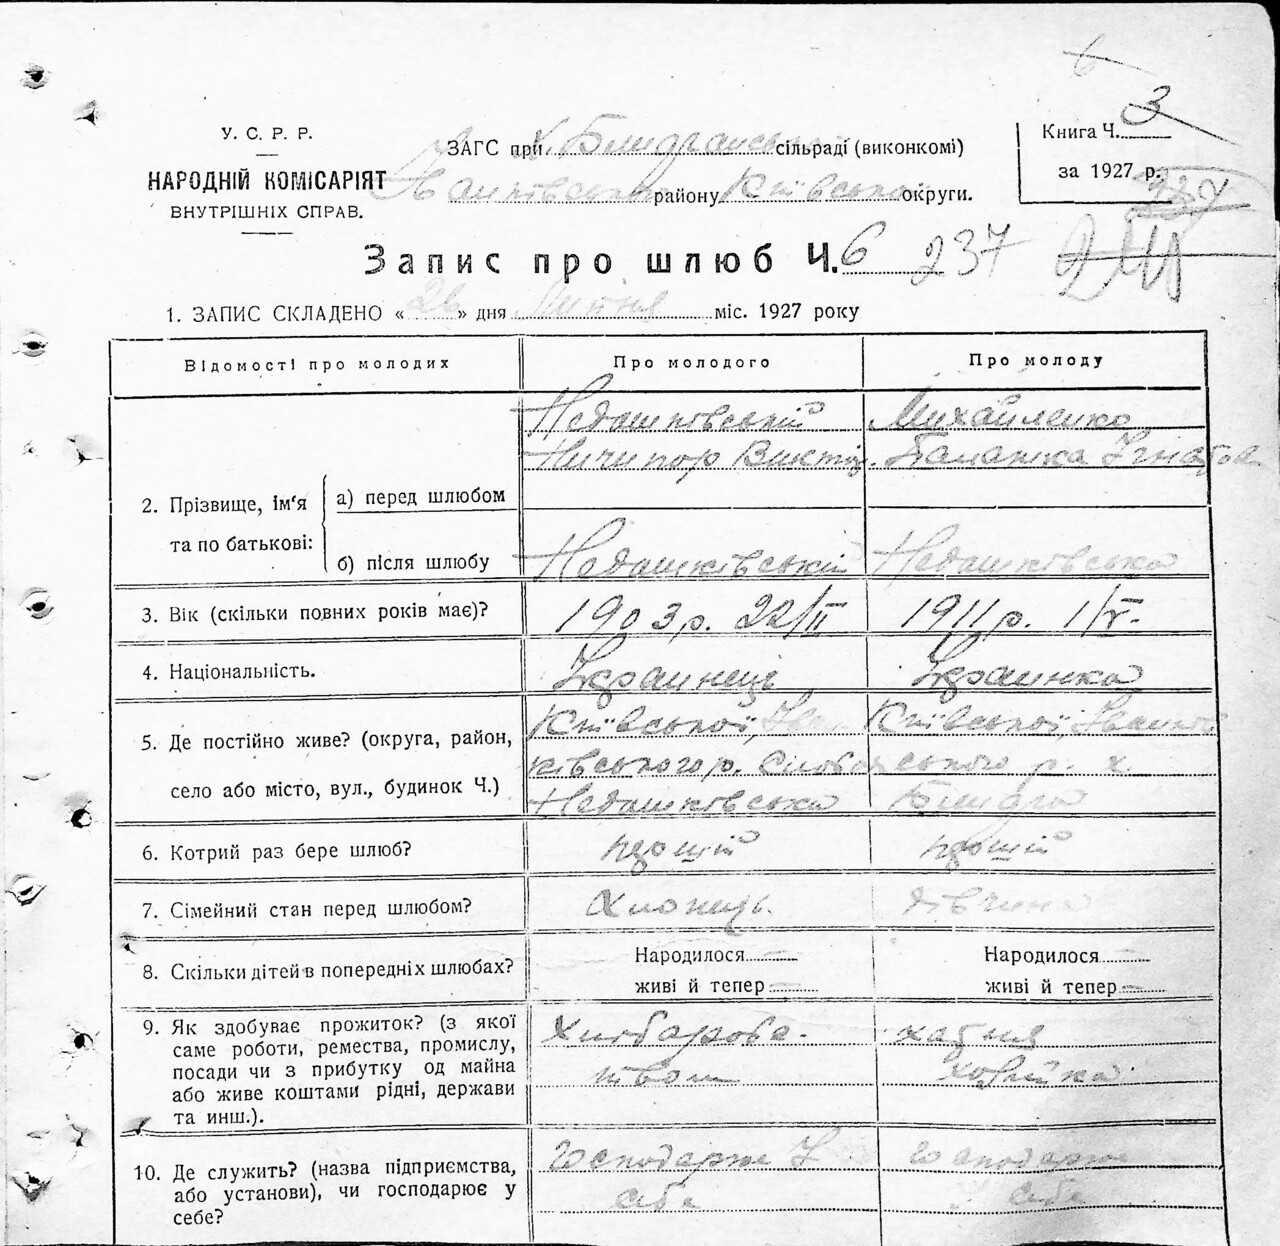 3
У. С. Р. Р.
ЗАГС при х. Билдганській сільраді (виконкомі)
Книга Ч.
НАРОДНІЙ КОМІСАРІЯТ
Іванківського району Київської округи.
за 1927 р.
ВНУТРІШНІХ СПРАВ.
237
Запис про шлюб Ч. 6 237
1. ЗАПИС СКЛАДЕНО « 26 » дня міс. 1927 року
Відомості про молодих Про молодого Про молоду
Недашківській Михайленко
Ничипор Виктор.
2. Прізвище, ім'я та по батькові: а) перед шлюбом
б) після шлюбу Недашківській Недашківська
3. Вік (скільки повних років має)? 1903 р. 22/II 1911 р. 1/V.
4. Національність. Українець Українка
Київської, Іван Київської, Іванкі
5. Де постійно живе? (округа, район, ківського р. Слобо ського р. х.
село або місто, вул., будинок Ч.) Недашківська
6. Котрий раз бере шлюб? перший перший
7. Сімейний стан перед шлюбом? Хлопець. дівчина
Народилося Народилося
8. Скільки дітей в попередніх шлюбах?
живі й тепер живі й тепер
9. Як здобуває прожиток? (з якої Хліборобс- хатня
саме роботи, ремества, промислу,
посади чи з прибутку од майна твом
або живе коштами рідні, держави
та инш.).
10. Де служить? (назва підприємства, господарює У господарює
або установи), чи господарює у себе себе
себе?